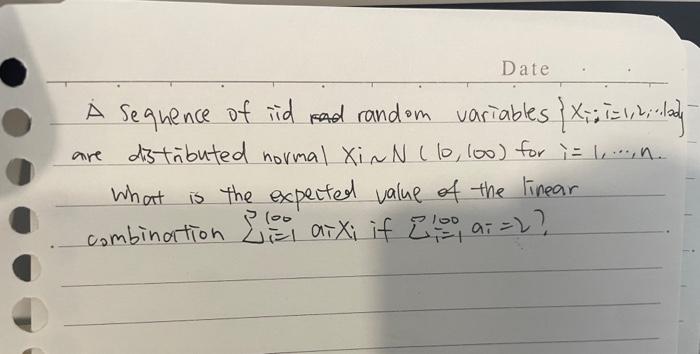 Date
A sequence of iid random variables {Xi; i=1,2,...100}
are distributed normal Xi ~ N (10, 100) for i = 1, ..., n.
What is the expected value of the linear
combination ∑_{i=1}^{100} aiXi if ∑_{i=1}^{100} ai = 2?